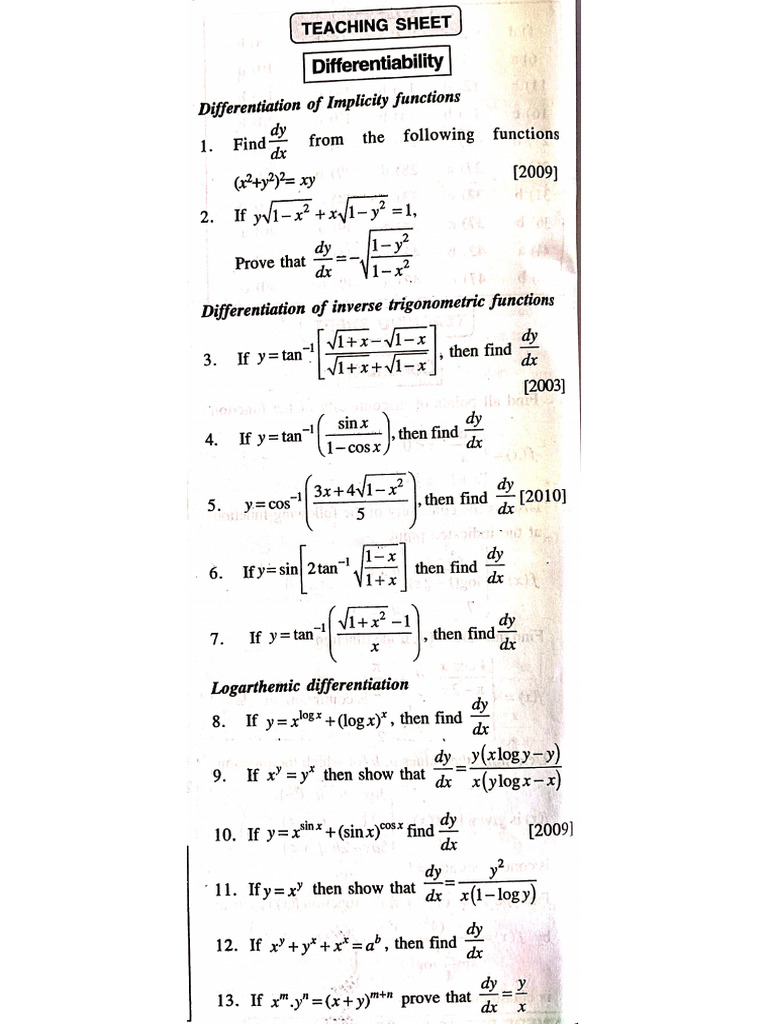 TEACHING SHEET
Differentiability
Differentiation of Implicity functions
1. Find dy/dx from the following functions
(x²+y²)²= xy [2009]
2. If y√(1−x²) + x√(1−y²) = 1,
Prove that dy/dx = −√((1−y²)/(1−x²))
Differentiation of inverse trigonometric functions
3. If y = tan⁻¹[(√(1+x) − √(1−x))/(√(1+x) + √(1−x))], then find dy/dx
[2003]
4. If y = tan⁻¹(sin x/(1−cos x)), then find dy/dx
5. y = cos⁻¹((3x+4√(1−x²))/5), then find dy/dx [2010]
6. If y = sin[2tan⁻¹√((1−x)/(1+x))] then find dy/dx
7. If y = tan⁻¹((√(1+x²) −1)/x), then find dy/dx
Logarthemic differentiation
8. If y = x^(log x) + (log x)^x, then find dy/dx
9. If x^y = y^x then show that dy/dx = y(x log y − y)/x(y log x − x)
10. If y = x^(sin x) + (sin x)^(cos x) find dy/dx [2009]
11. If y = x^y then show that dy/dx = y²/x(1−log y)
12. If x^y + y^x + x^x = a^b, then find dy/dx
13. If x^m.y^n = (x+y)^(m+n) prove that dy/dx = y/x